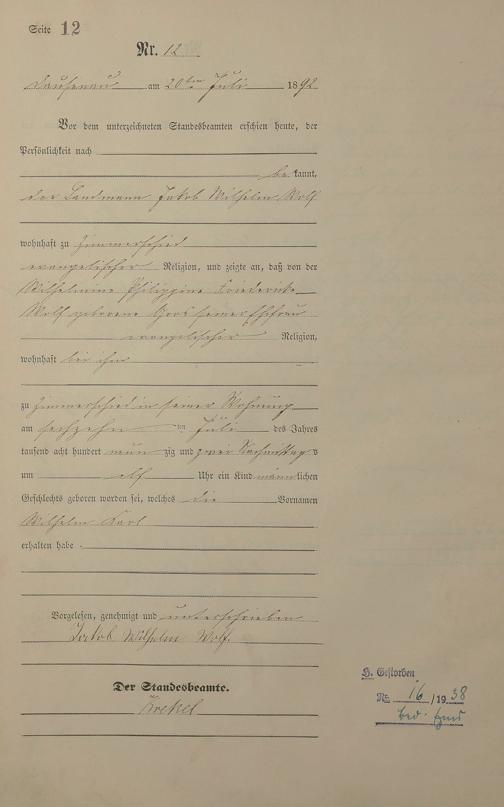 Seite 12
Nr. 12
Dausenau am 20ten Juli 1892
Vor dem unterzeichneten Standesbeamten erschien heute, der
Persönlichkeit nach
be kannt,
der Landmann Jakob Wilhelm Wolf
wohnhaft zu Zimmerschied
evangelischer Religion, und zeigte an, daß von der
Wilhelmine Philippine Friederike
Wolf geborene seiner Ehefrau
evangelischer Religion,
wohnhaft bei ihm
zu Zimmerschied in seiner Wohnung
am sechzehn ten Juli des Jahres
tausend acht hundert neun zig und zwei Nachmittag s
um elf Uhr ein Kind männlichen
Geschlechts geboren worden sei, welches die Vornamen
Wilhelm Karl
erhalten habe.
Vorgelesen, genehmigt und unterschrieben
Jakob Wilhelm Wolf.
Der Standesbeamte.
H. Gestorben
Nr. 16 /1938